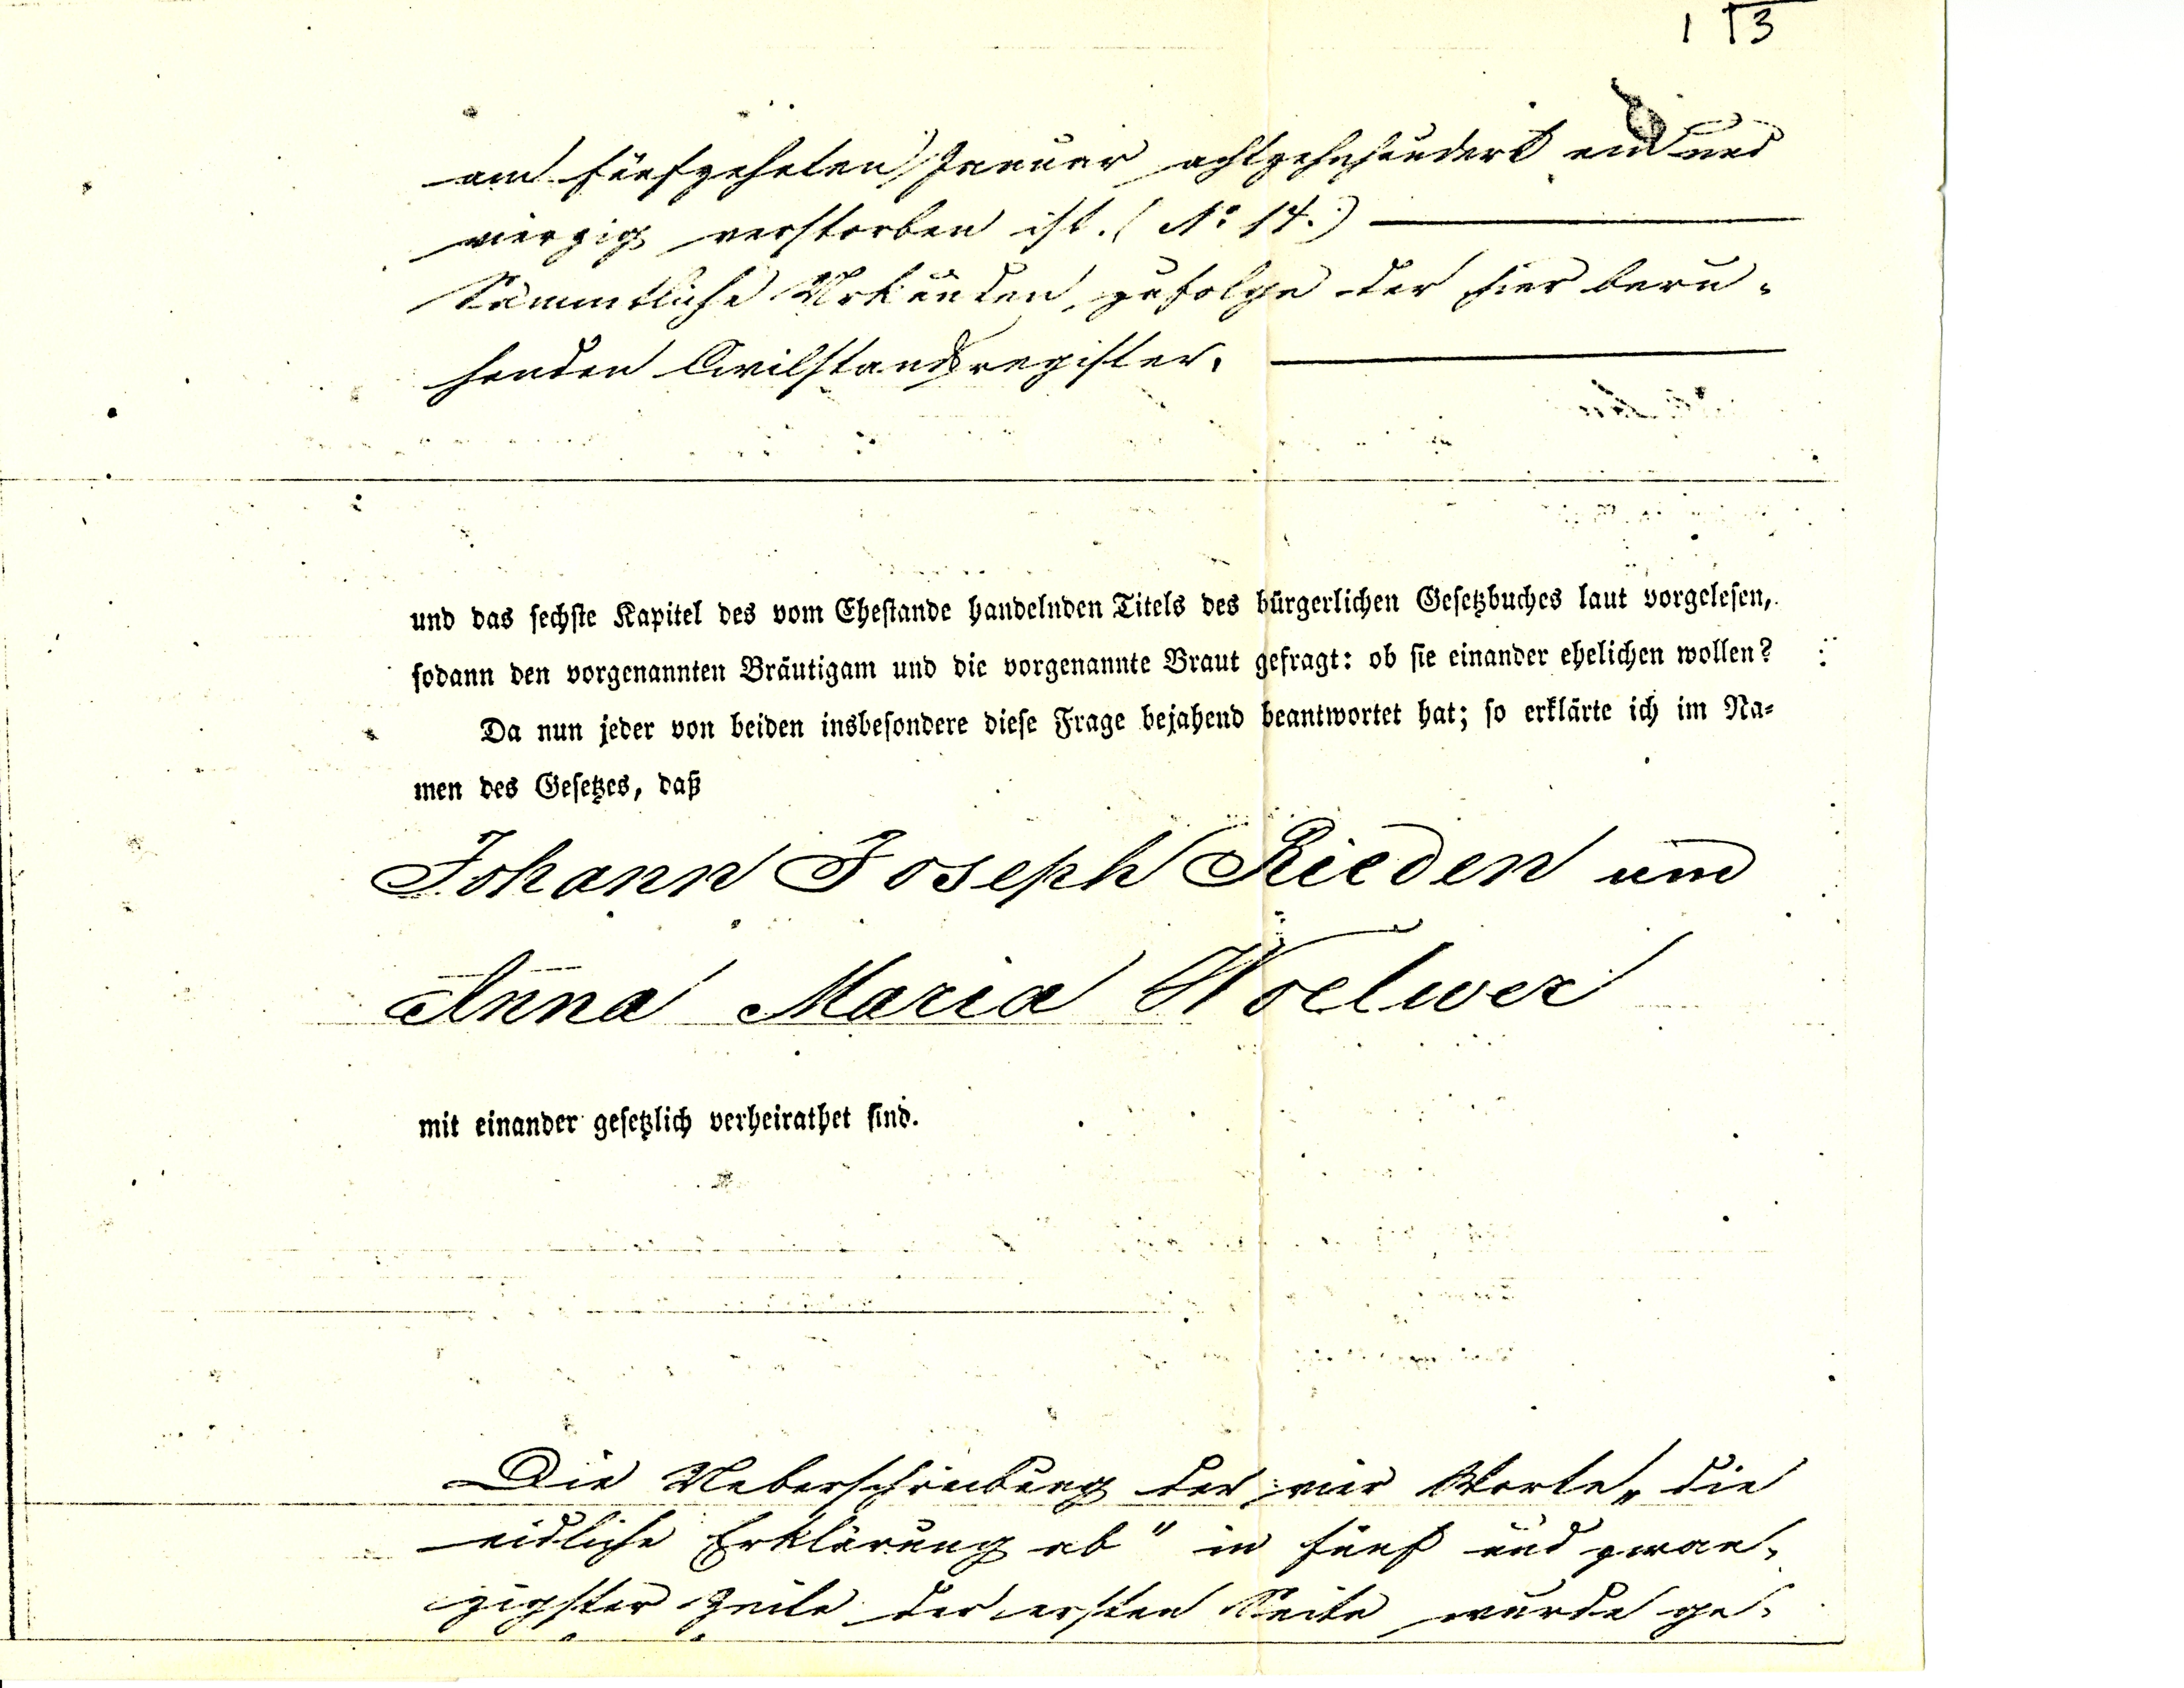 1 13
am fünfzehnten Januar achtzehnhundert ein und
vierzig verstorben ist. (No 14.)
Sämmtliche Urkunden, zufolge der hier beru-
henden Civilstandsregister.
und das sechste Kapitel des vom Ehestande handelnden Titels des bürgerlichen Gesetzbuches laut vorgelesen,
sodann den vorgenannten Bräutigam und die vorgenannte Braut gefragt: ob sie einander ehelichen wollen?
Da nun jeder von beiden insbesondere diese Frage bejahend beantwortet hat; so erklärte ich im Na-
men des Gesetzes, daß
Johann Joseph Rieden und
Anna Maria Woelwer
mit einander gesetzlich verheirathet sind.
Die Ueberschreibung der vier Worte „die
eidliche Erklärung ab" in fünf und zwan-
zigster Zeile der ersten Seite wurde ge-